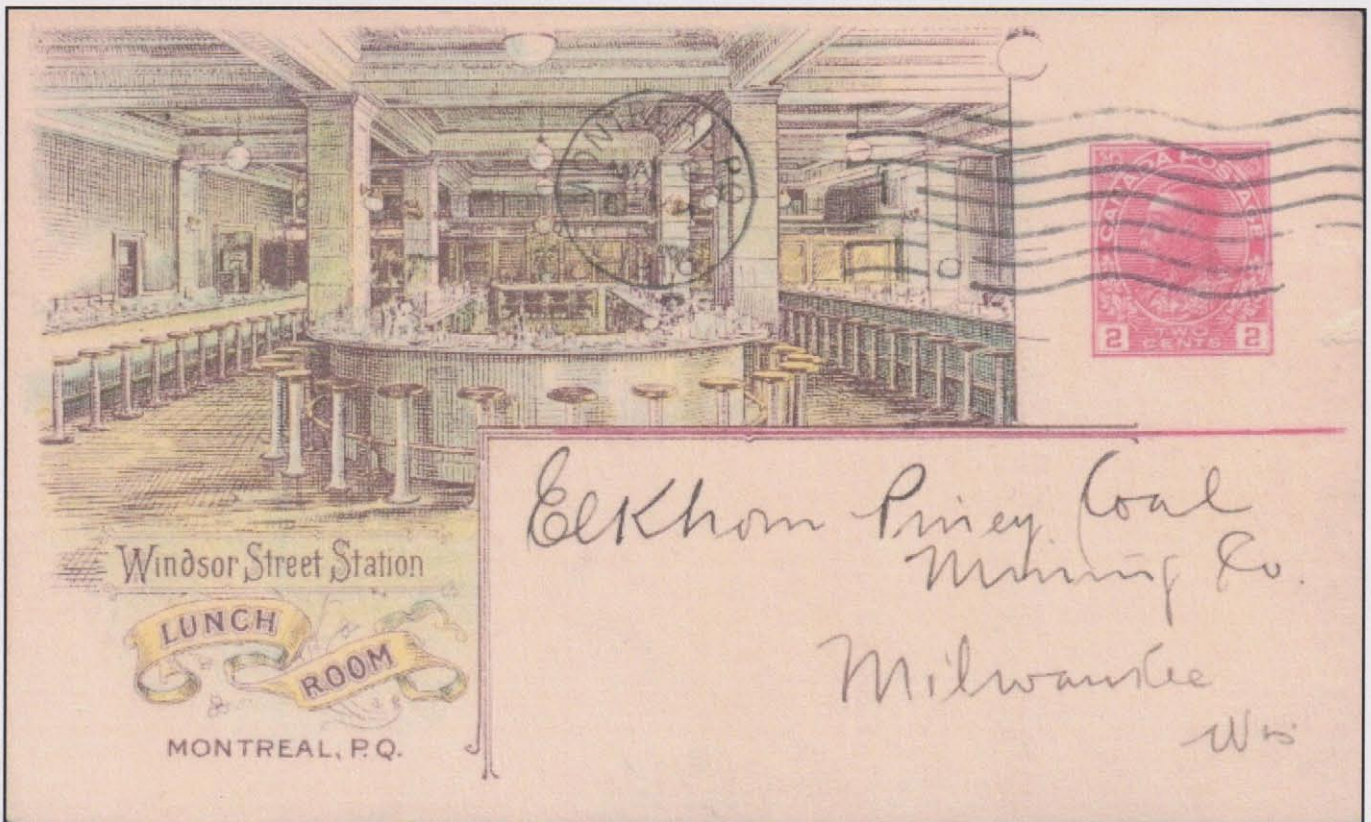 MONTREAL P.Q.
CANADA POSTAGE
2 TWO CENTS 2
Windsor Street Station
LUNCH
ROOM
MONTREAL, P.Q.
Elkhorn Piney Coal
Mining Co.
Milwaukee
Wis